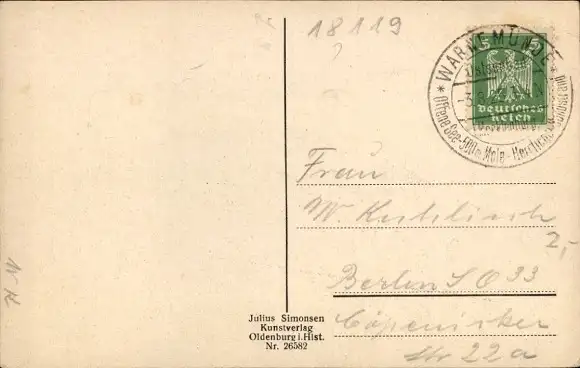 18119
WARNEMÜNDE
Offene See-500m Mole-Herrliche
5 5
Deutsches
Reich
Frau
W.
2,-
Berlin SO 33
Cöpenicker
Str 22a
Julius Simonsen
Kunstverlag
Oldenburg i. Hlst.
Nr. 26582